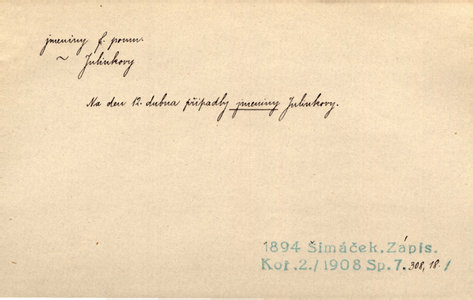 jmeniny f. pomn.
~ Julinkovy
Na den 12. dubna případly jmeniny Julinkovy.
1894 Šimáček. Zápis.
Koř. 2./1908 Sp. 7. 308, 18 /